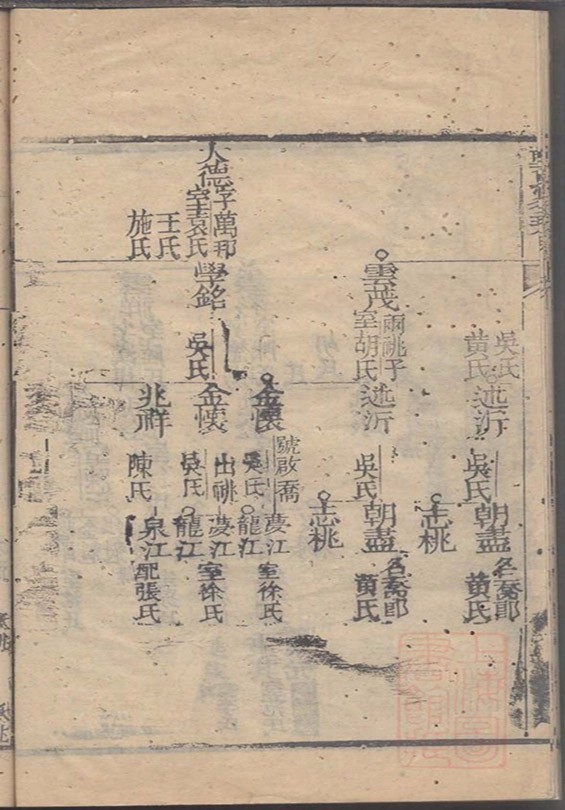 吳氏
黃氏
述沂
吳氏
朝盡
名喬郎
黃氏
志桃
雲茂
兩祧子
室胡氏
述沂
吳氏
朝盡
名喬郎
黃氏
志桃
大德
子萬那
室袁氏
王氏
施氏
學銘
吳氏
金懷
號啟喬
吳氏
夢江
室徐氏
龍江
金懷
出祧
吳氏
夢江
室徐氏
龍江
兆祥
陳氏
泉江
配張氏